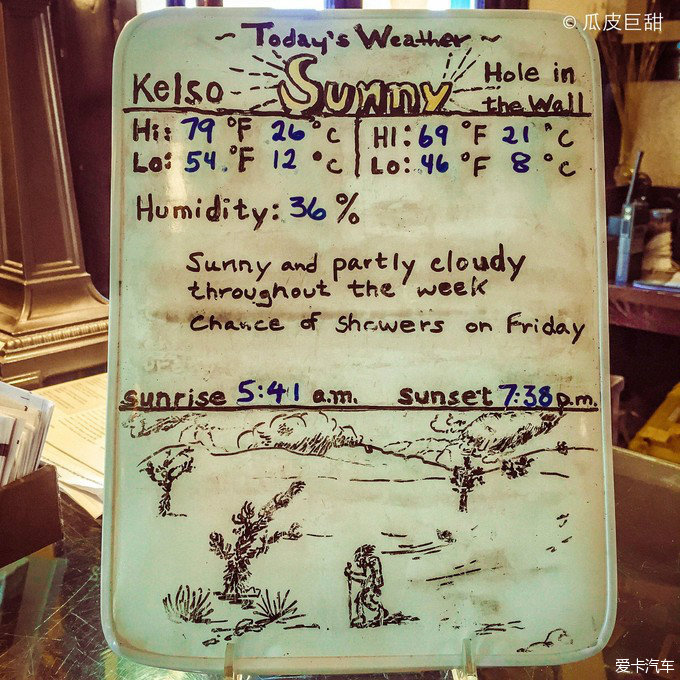 © 瓜皮巨甜
~ Today's Weather ~
Kelso Sunny Hole in the Wall
Hi: 79 °F 26 °C HI: 69 °F 21 °C
Lo: 54 °F 12 °C LO: 46 °F 8 °C
Humidity: 36 %
Sunny and partly cloudy
throughout the week
Chance of Showers on Friday
sunrise 5:41 a.m. sunset 7:38 p.m.
爱卡汽车